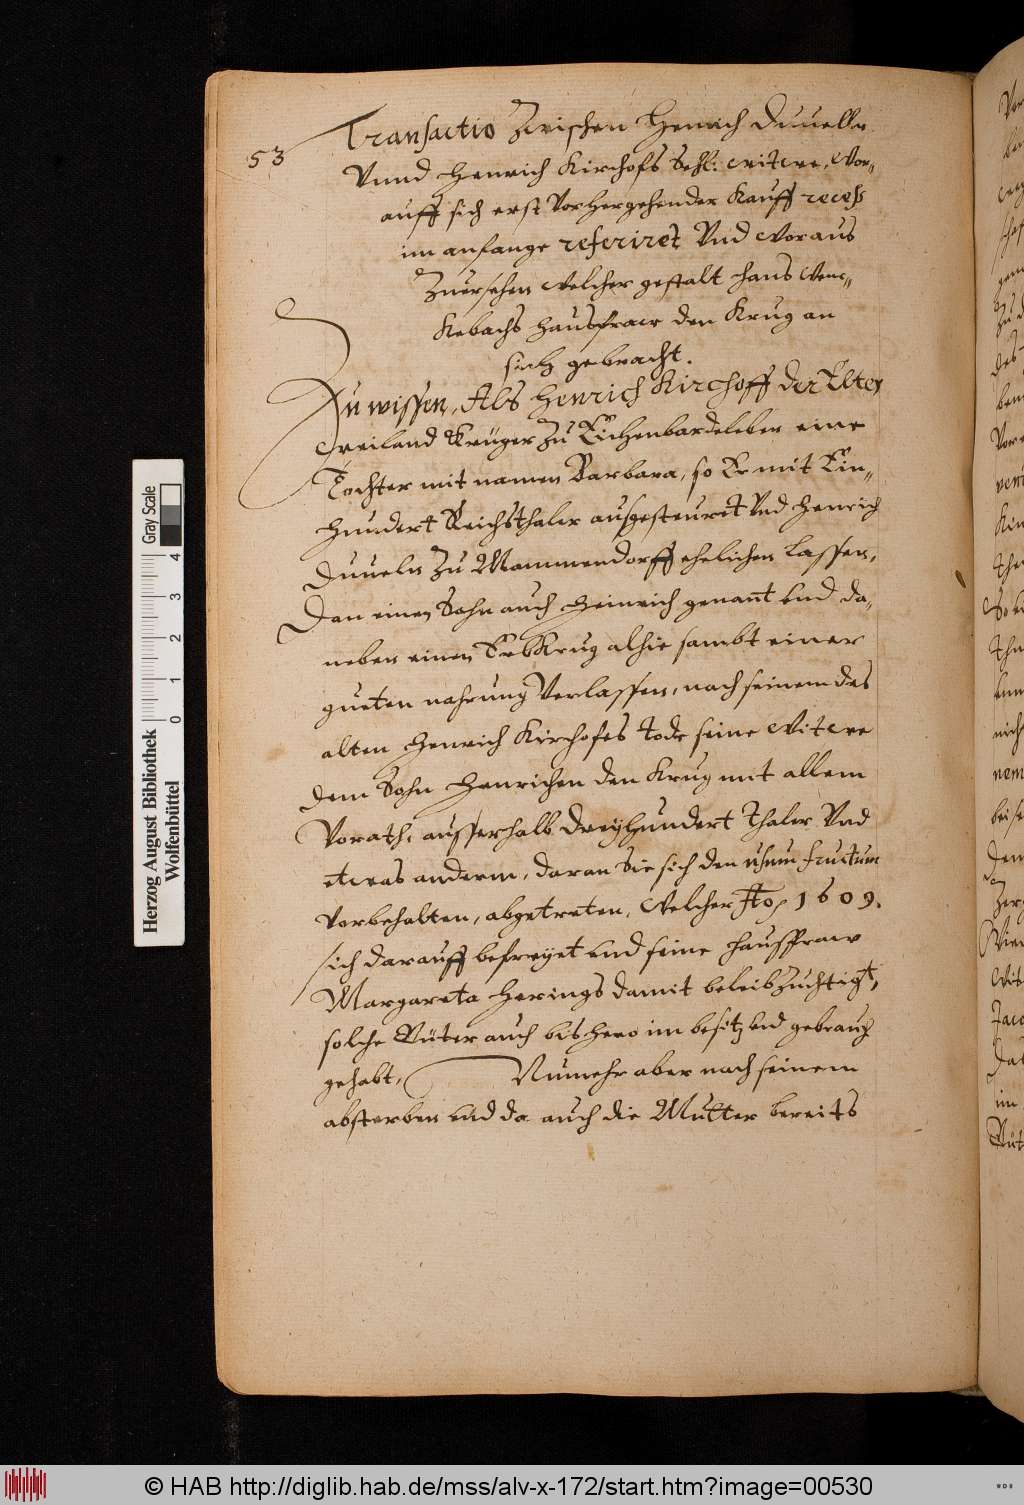 53
Transactio Zwischen Henrich Duueln
Vnnd Henrich Kirchofs Sehl: witwe, Wor„
auff sich erst vorhergehender Kauff recess
im anfange referiret Vnd Woraus
Zuersehen welcher gestalt Hans Wenc„
kebachs Hausfraw den Krug an
sich gebracht.
Zu wissen, Als Henrich Kirchoff der Elter
weiland Krüger Zu Eichenbardeleben eine
Tochter mit namen Barbara, so Er mit Ein„
hundert Reichsthaler ausgesteuret Vnd Henrich
Duueln Zu Mammendorff ehelichen lassen,
Dan einen Sohn auch Heinrich genant und da„
neben einen ErbKrug alhie sambt einer
gueten nahrung Verlassen, nach seinem des
alten Henrich Kirchofes tode seine Witwe
dem Sohn Henrichen den Krug mit allem
Vorath, ausserhalb dreyhundert thaler Vnd
etwas anderm, daran Sie sich den usum fructum
vorbehalten, abgetreten, Welcher Ao 1609.
sich darauff befreyet und seine Hausfraw
Margareta Herings damit beleibzuchtigt,
solche Güter auch bishero im besitz und gebrauch
gehabt, Numehr aber nach seinem
absterben und da auch die Mutter bereits
Gray Scale
0 1 2 3 4
Herzog August Bibliothek
Wolfenbüttel
© HAB http://diglib.hab.de/mss/alv-x-172/start.htm?image=00530